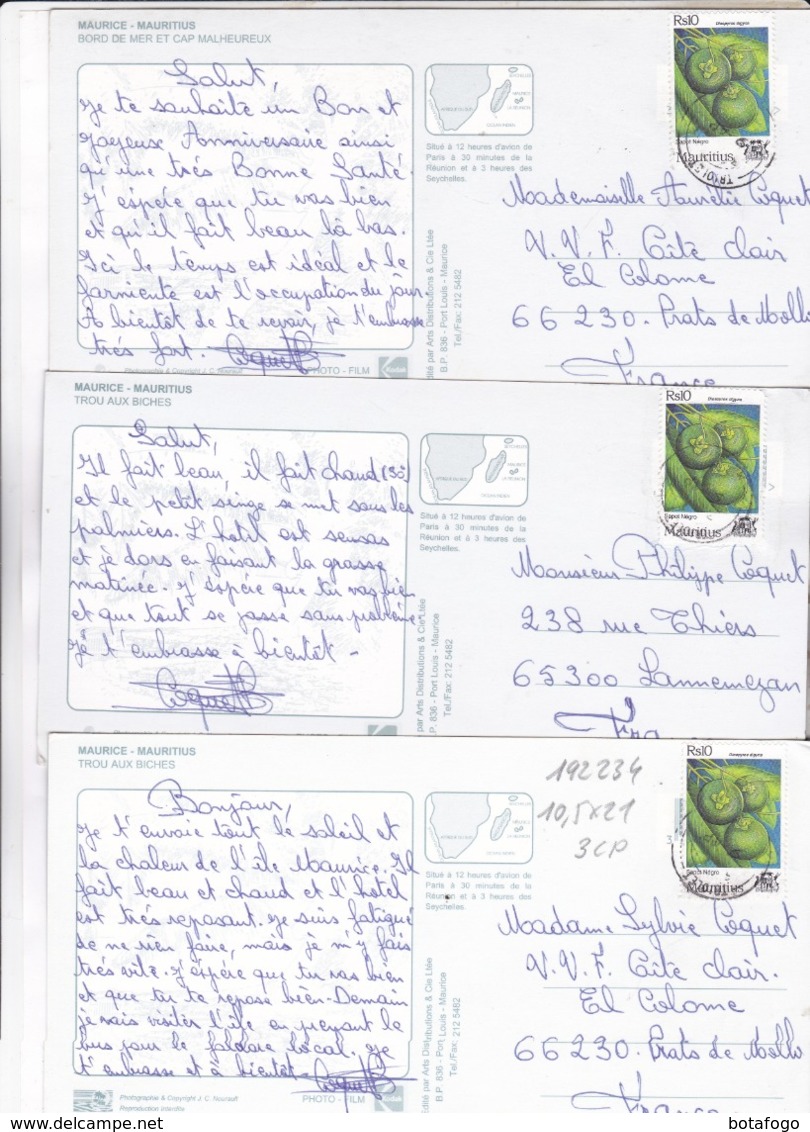 MAURICE - MAURITIUS
BORD DE MER ET CAP MALHEUREUX
Salut,
Je te souhaite un Bon et
Joyeuse Anniversaire ainsi
qu'une très Bonne Santé.
J'espère que tu vas bien
et qu'il fait beau là bas.
Ici le temps est idéal et le
farniente est l'occupation du jour.
A bientôt de te revoir, je t'embrasse
très fort. Coquet
Photographie & Copyright J. C. Nourault
PHOTO - FILM
Kodak
Situé à 12 heures d'avion de
Paris à 30 minutes de la
Réunion et à 3 heures des
Seychelles.
Edité par Arts Distributions & Cie Ltée
B.P. 836 - Port Louis - Maurice
Tel./Fax: 212 5482
Rs10
Diospyros digyna
Sapot Nègro
Mauritius
Mademoiselle Aurélie Coquet
V.V.F. Cité clair
El Colome
66230. Prats de Mollo
France
MAURICE - MAURITIUS
TROU AUX BICHES
Salut,
Il fait beau, il fait chaud (30°)
et le petit singe se met sous les
palmiers. L'hotel est sensas
et je dors en faisant la grasse
matinée. J'espère que tu vas bien
et que tout se passe sans problème
Je t'embrasse à bientôt -
Coquet
Situé à 12 heures d'avion de
Paris à 30 minutes de la
Réunion et à 3 heures des
Seychelles.
par Arts Distributions & Cie Ltée
.P. 836 - Port Louis - Maurice
Tel./Fax: 212 5482
Rs10
Diospyros digyna
Sapot Nègro
Mauritius
Monsieur Philippe Coquet
238 rue Thiers
65300 Lannemezan
Fra
MAURICE - MAURITIUS
TROU AUX BICHES
Bonjour,
Je t'envoie tout le soleil et
la chaleur de l'île Maurice. Il
fait beau et chaud et l'hôtel
est très reposant. Je suis fatigué
de ne rien faire, mais je m'y fais
très vite. J'espère que tu vas bien
et que tu te repose bien. Demain
je vais visiter l'île en prenant le
bus pour le folklore local. Je
t'embrasse et à bientôt - Coquet
Photographie & Copyright J. C. Nourault
Reproduction interdite
PHOTO - FILM
Kodak
Situé à 12 heures d'avion de
Paris à 30 minutes de la
Réunion et à 3 heures des
Seychelles.
Edité par Arts Distributions & Cie Ltée
B.P. 836 - Port Louis - Maurice
Tel./Fax: 212 5482
192234
10,5x21
3CP
Rs10
Diospyros digyna
Sapot Nègro
Mauritius
Madame Sylvie Coquet
V.V.F. Cité clair.
El Colome
66230. Prats de Mollo
France
botafogo